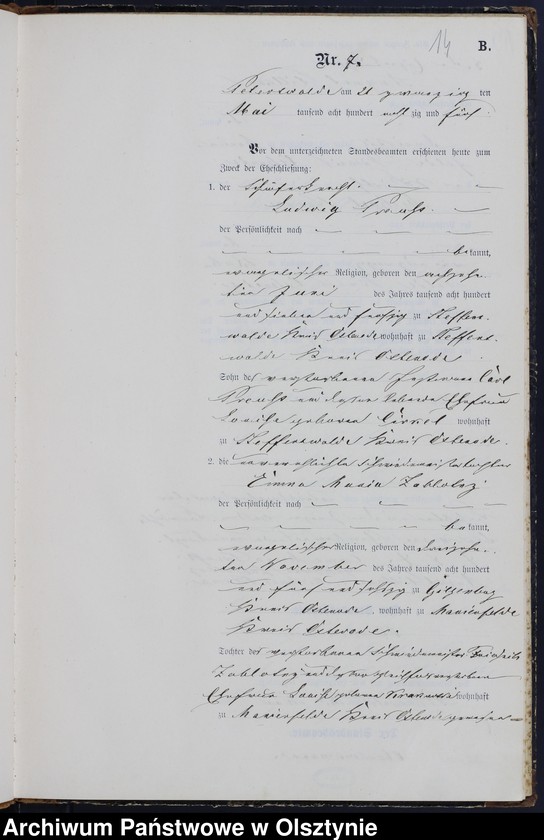 14
B.
Nr. 7.
Peterswalde am 21 zwanzig ten
Mai tausend acht hundert acht zig und fünf.
Vor dem unterzeichneten Standesbeamten erschienen heute zum
Zweck der Eheschließung:
1. der Schäferknecht
Ludwig
der Persönlichkeit nach
bekannt,
evangelischer Religion, geboren den achtzehn
ten Juni des Jahres tausend acht hundert
und sieben und fünfzig zu
walde Kreis Osterode wohnhaft zu
walde Kreis Osterode
Sohn des verstorbenen Carl
und dessen Ehefrau
Louise geborene wohnhaft
zu Kreis Osterode.
2. die unverehelichte Schmiedemeistertochter
Emma Maria Zablotzy
der Persönlichkeit nach
bekannt,
evangelischer Religion, geboren den dreizehn
ten November des Jahres tausend acht hundert
und fünf und sechzig zu
Kreis Osterode wohnhaft zu Marienfelde
Kreis Osterode.
Tochter des verstorbenen Schmiedemeister Friedrich
Zablotzy und
Ehefrau Louise geborene wohnhaft
zu Marienfelde Kreis Osterode gewesen
Archiwum Państwowe w Olsztynie